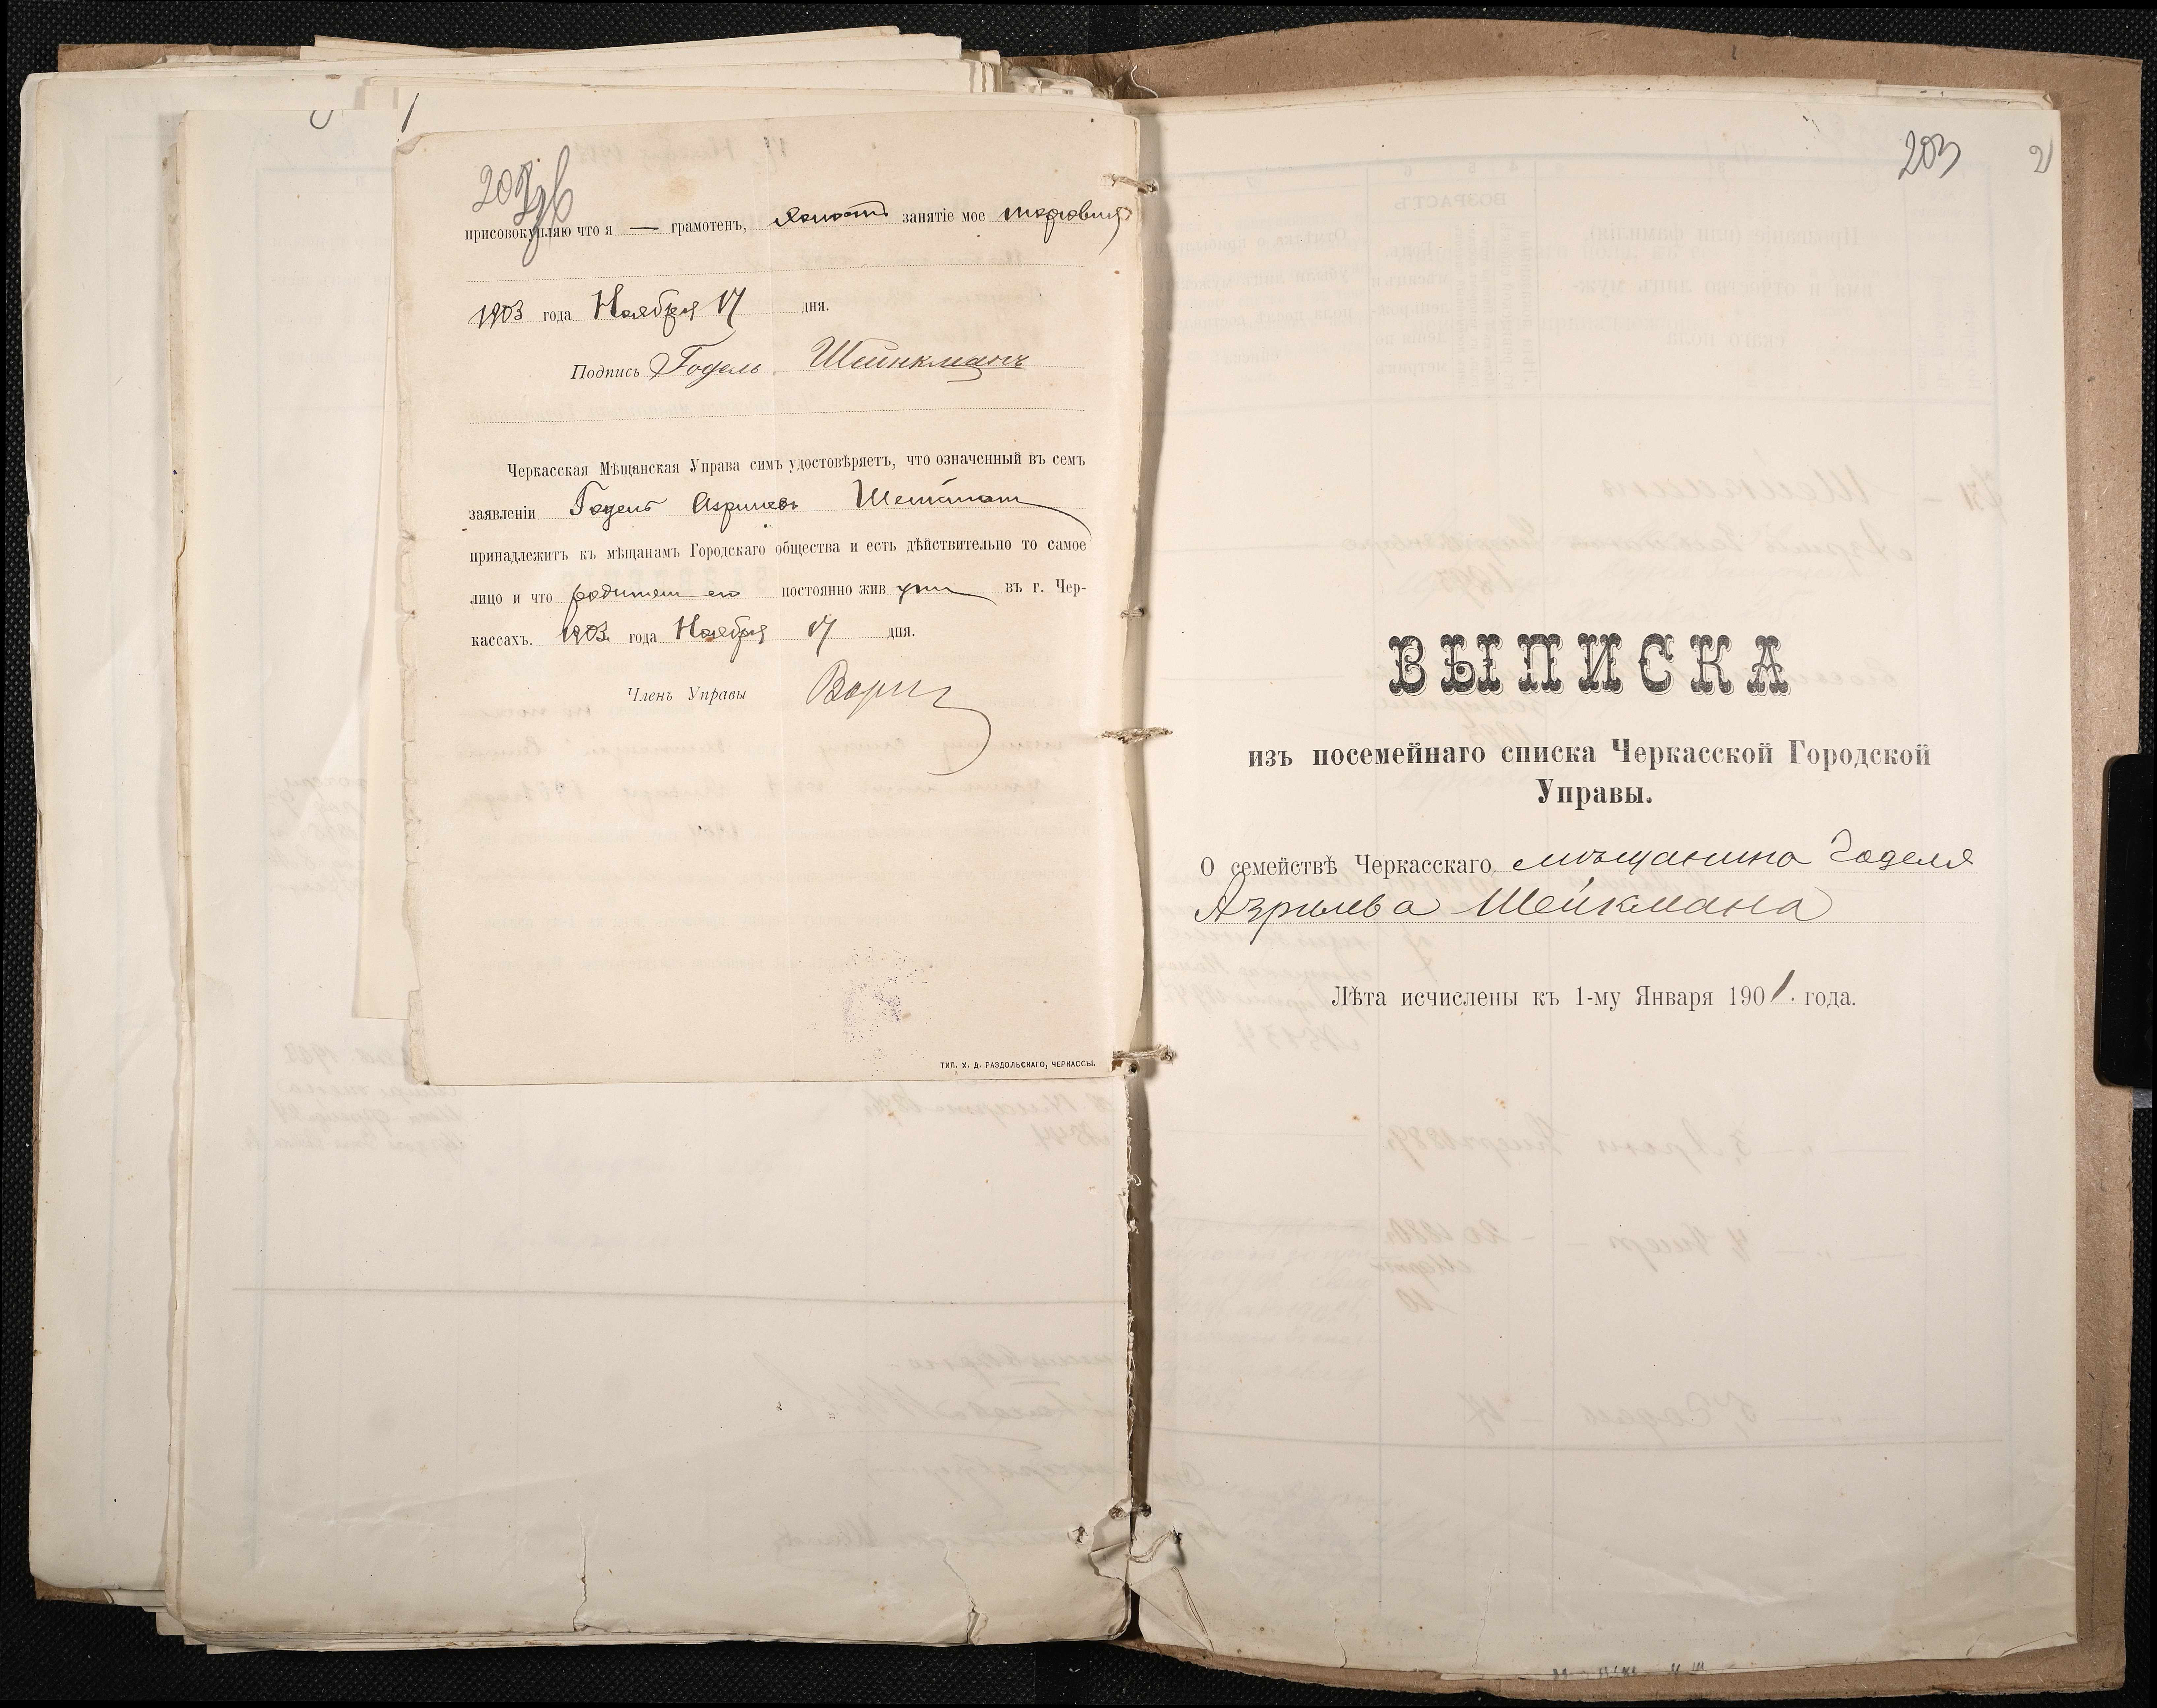 присовокупляю что я — грамотенъ, холостъ занятіе мое торговля
1903 года Ноября 17 дня.
Подпись Годель Шейнкманъ
Черкасская Мѣщанская Управа симъ удостовѣряетъ, что означенный въ семъ
заявленіи Годель Азрилевъ
принадлежитъ къ мѣщанамъ Городскаго общества и есть дѣйствительно то самое
лицо и что родители его постоянно жив утъ въ г. Чер-
кассахъ. 1903 года Ноября 17 дня.
Членъ Управы
ТИП. Х. Д. РАЗДОЛЬСКАГО, ЧЕРКАССЫ.
203
ВЫПИСКА
изъ посемейнаго списка Черкасской Городской
Управы.
О семействѣ Черкасскаго мѣщанина Годеля
Азрилева Шейкмана
Лѣта исчислены къ 1-му Января 1901. года.